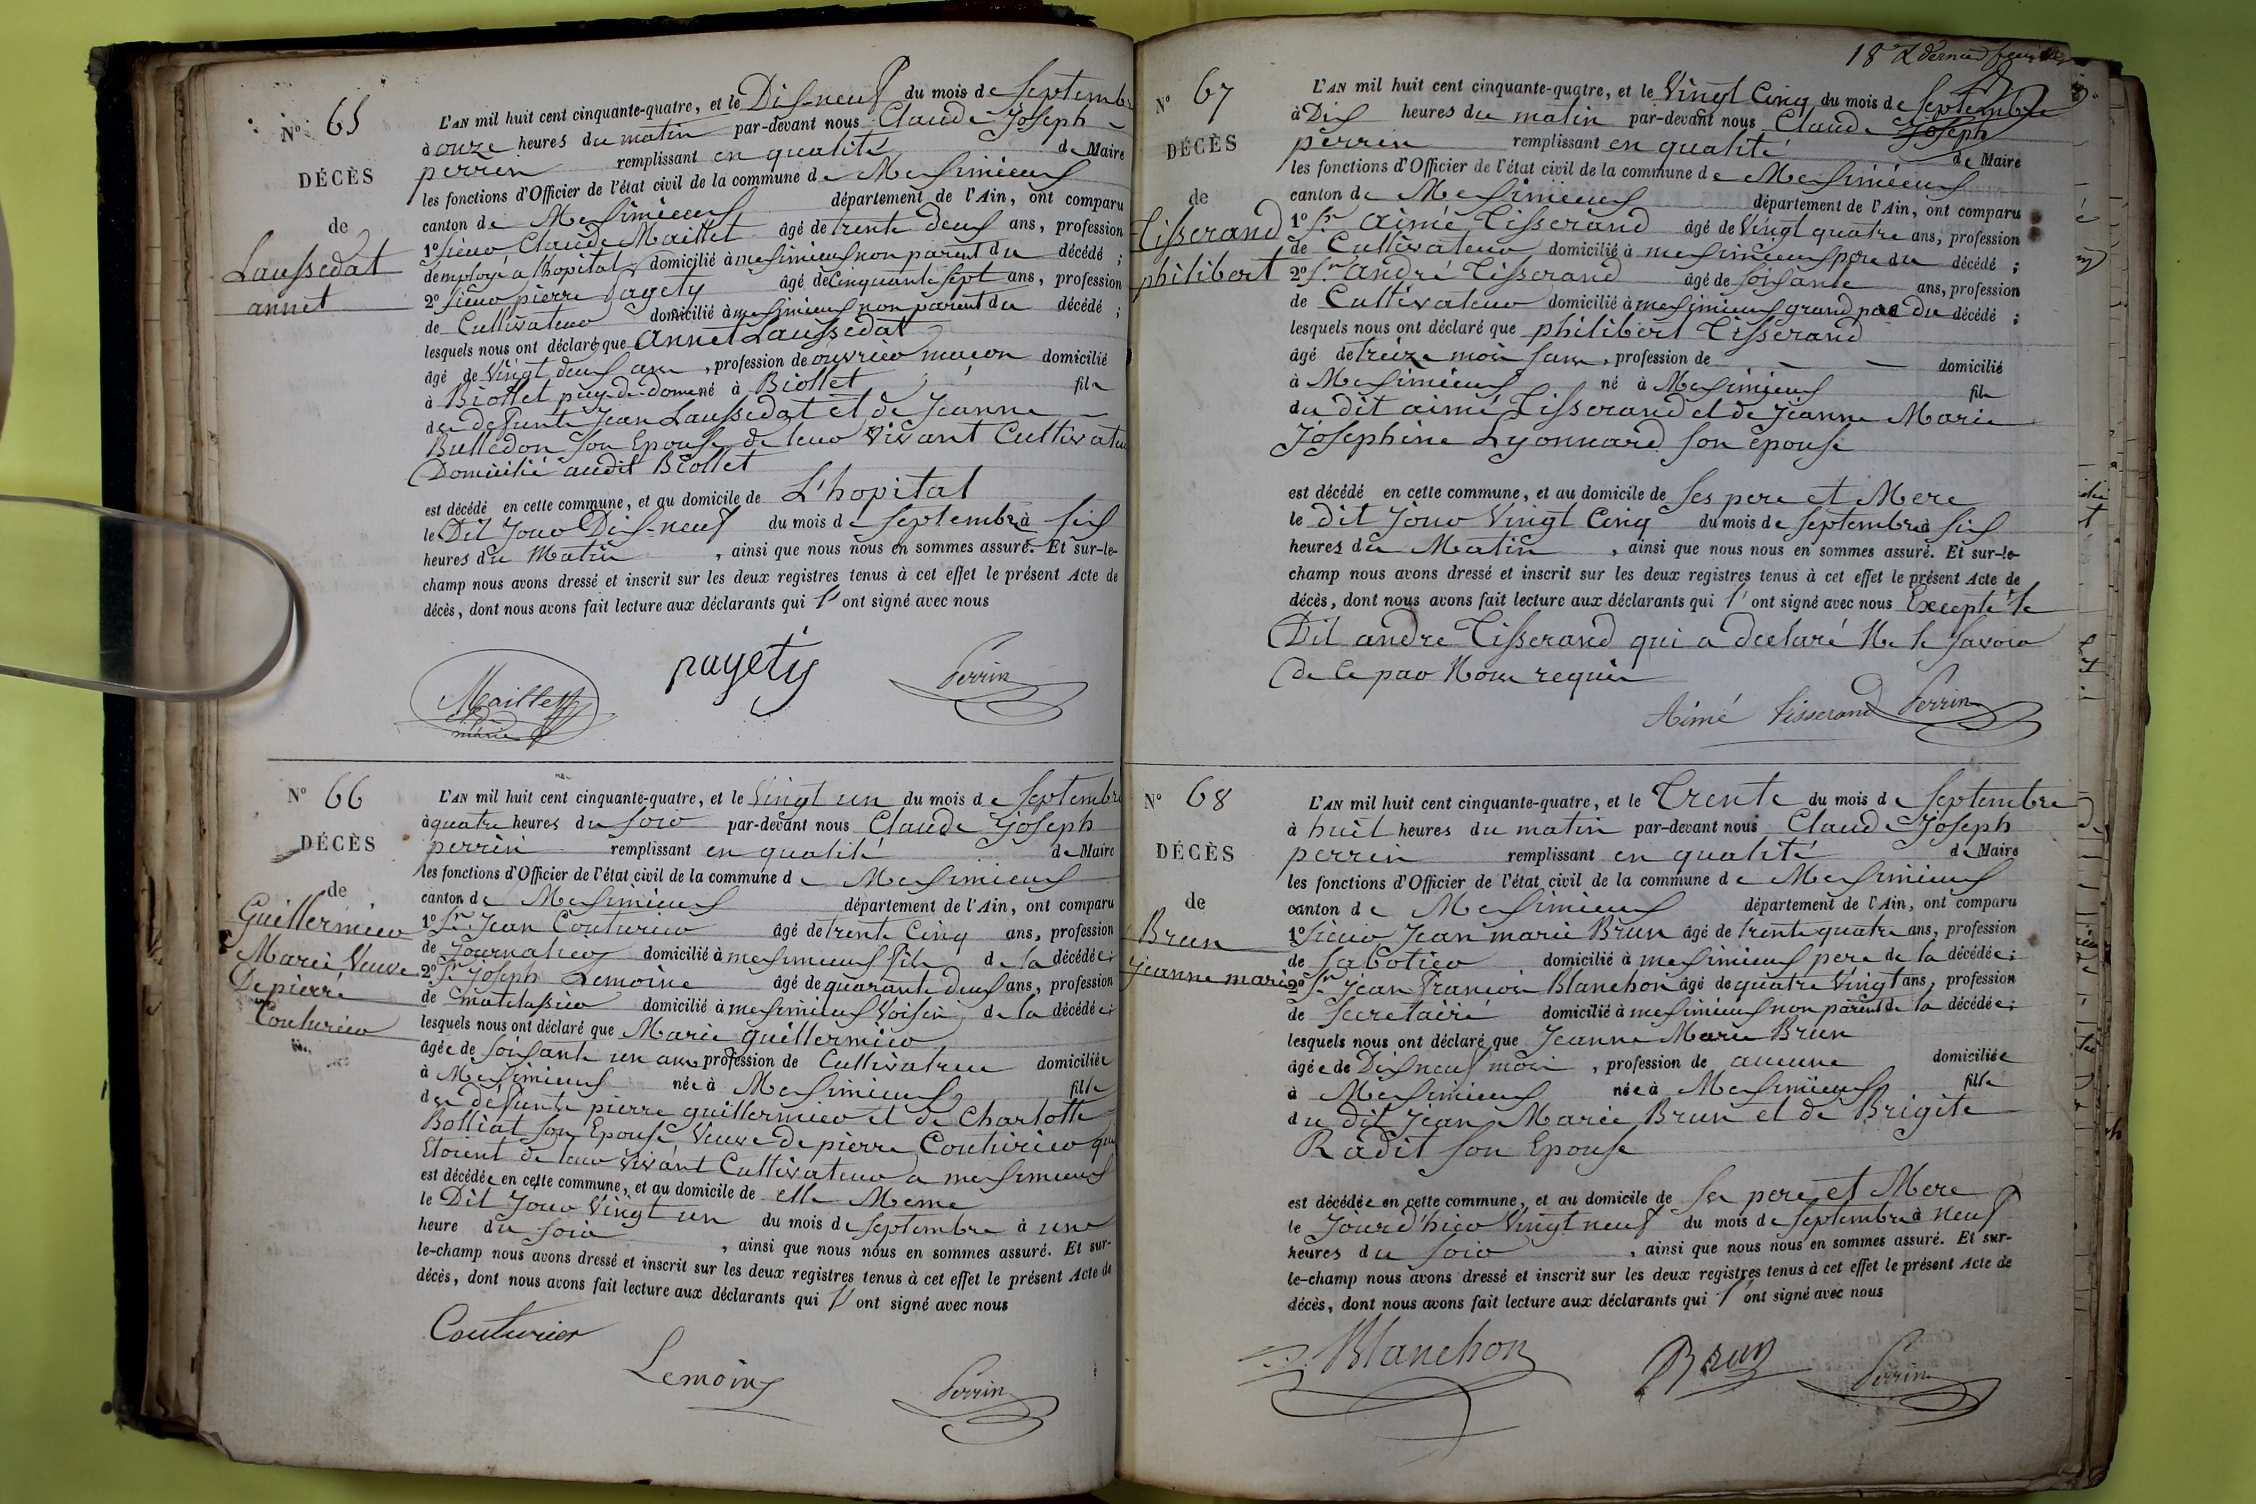 N° 65
DÉCÈS
de
Laussedat
annet
L'AN mil huit cent cinquante-quatre, et le Dix-neuf du mois de Septembre
à onze heures du matin par-devant nous Claude Joseph
perrin remplissant en qualité de Maire
les fonctions d'Officier de l'état civil de la commune de Meximieux
canton de Meximieux département de l'Ain, ont comparu
1° Sieur Claude Maillet âgé de trente deux ans, profession
d'employé a l'hopital domicilié à meximieux non parent du décédé ;
2° Sieur pierre pagety âgé de Cinquante sept ans, profession
de Cultivateur domicilié à meximieux non parent du décédé ;
lesquels nous ont déclaré que annet Laussedat
âgé de Vingt deux ans, profession de ouvrier maçon domicilié
à Biollet puy-de-dome né à Biollet fils
de défunts Jean Laussedat et de Jeanne
Bulledon son Epouse de leur vivant Cultivateur
Domicilié audit Biollet
est décédé en cette commune, et au domicile de L'hopital
le Dit Jour Dix-neuf du mois de septembre à six
heures du Matin, ainsi que nous nous en sommes assuré. Et sur-le-
champ nous avons dressé et inscrit sur les deux registres tenus à cet effet le présent Acte de
décès, dont nous avons fait lecture aux déclarants qui l' ont signé avec nous
Maillet
pagety
Perrin
N° 66
DÉCÈS
de
Guillermier
Marie Veuve
De pierre
Couturier
L'AN mil huit cent cinquante-quatre, et le Vingt un du mois de Septembre
à quatre heures du soir par-devant nous Claude Joseph
perrin remplissant en qualité de Maire
les fonctions d'Officier de l'état civil de la commune de Meximieux
canton de Meximieux département de l'Ain, ont comparu
1° Sr. Jean Couturier âgé de trente Cinq ans, profession
de Journalier domicilié à meximieux fils de la décédée ;
2° Sr Joseph Lemoine âgé de quarante deux ans, profession
de matelassier domicilié à meximieux Voisin de la décédée ;
lesquels nous ont déclaré que Marie guillermier
âgée de soixante un ans profession de Cultivatrice domiciliée
à Meximieux née à Meximieux fille
de défunts pierre guillermier et de Charlotte
Bolliat son Epouse, Veuve De pierre Couturier qui
Etoient de leur vivant Cultivateur a meximieux
est décédée en cette commune, et au domicile de elle Meme
le Dit Jour Vingt un du mois de septembre à une
heure du soir, ainsi que nous nous en sommes assuré. Et sur-
le-champ nous avons dressé et inscrit sur les deux registres tenus à cet effet le présent Acte de
décès, dont nous avons fait lecture aux déclarants qui l' ont signé avec nous
Couturier
Lemoine
Perrin
18 & dernier feuillet
N° 67
DÉCÈS
de
Tisserand
philibert
L'AN mil huit cent cinquante-quatre, et le Vingt Cinq du mois de Septembre
à Dix heures du matin par-devant nous Claude Joseph
perrin remplissant en qualité de Maire
les fonctions d'Officier de l'état civil de la commune de Meximieux
canton de Meximieux département de l'Ain, ont comparu
1° Sr. aimé Tisserand âgé de Vingt quatre ans, profession
de Cultivateur domicilié à meximieux pere du décédé ;
2° Sr andré Tisserand âgé de soixante ans, profession
de Cultivateur domicilié à meximieux grand pere du décédé ;
lesquels nous ont déclaré que philibert Tisserand
âgé de treize mois, profession de domicilié
à Meximieux né à Meximieux fils
du dit aimé Tisserand et de Jeanne Marie
Josephine Lyonnard son épouse
est décédé en cette commune, et au domicile de ses pere et Mere
le dit Jour Vingt Cinq du mois de septembre à six
heures du Matin, ainsi que nous nous en sommes assuré. Et sur-le-
champ nous avons dressé et inscrit sur les deux registres tenus à cet effet le présent Acte de
décès, dont nous avons fait lecture aux déclarants qui l' ont signé avec nous Excepté le
Dit andre Tisserand qui a declaré Ne le savoir
de Ce par Nous requis
Aimé Tisserand Perrin
N° 68
DÉCÈS
de
Brun
Jeanne marie
L'AN mil huit cent cinquante-quatre, et le Trente du mois de Septembre
à huit heures du matin par-devant nous Claude Joseph
perrin remplissant en qualité de Maire
les fonctions d'Officier de l'état civil de la commune de Meximieux
canton de Meximieux département de l'Ain, ont comparu
1° Sieur Jean marie Brun âgé de trente quatre ans, profession
de Sabotier domicilié à meximieux pere de la décédée ;
2° Sr Jean Francois Blanchon âgé de quatre Vingt ans, profession
de Secretaire domicilié à meximieux non parent de la décédée ;
lesquels nous ont déclaré que Jeanne Marie Brun
âgée de Dix neuf mois, profession de aucune domiciliée
à Meximieux née à Meximieux fille
du dit Jean Marie Brun et de Brigite
Radit son Epouse
est décédée en cette commune, et au domicile de ses pere et Mere
le Jour d'hier Vingt neuf du mois de septembre à neuf
heures du soir, ainsi que nous nous en sommes assuré. Et sur-
le-champ nous avons dressé et inscrit sur les deux registres tenus à cet effet le présent Acte de
décès, dont nous avons fait lecture aux déclarants qui l' ont signé avec nous
Blanchon
Brun
Perrin